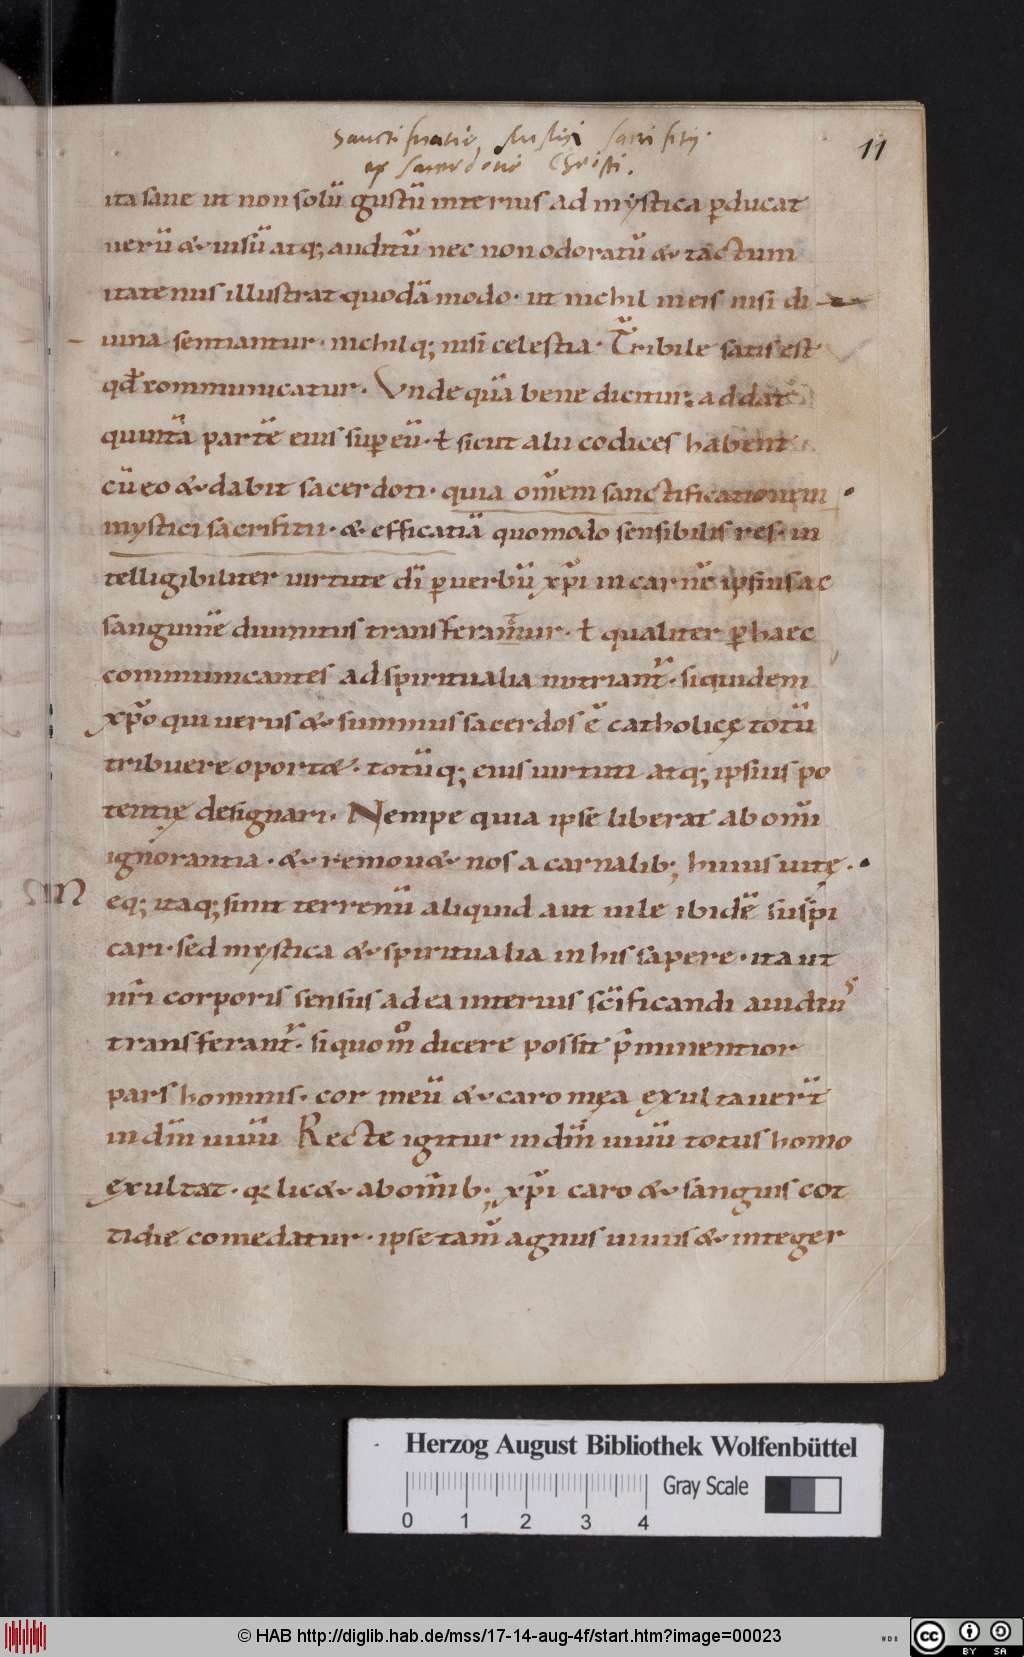 Sanctificatio mystici sacrificij
ex sacerdotio Christi.
11
ita sane ut non solū gustū interius ad mystica ꝑducat
uerū & uisū atq; auditū nec non odoratū & tactum
itatenus illustrat quodā modo · ut nichil in eis nisi di
uina sentiantur · nichilq; nisi celestia · Tͬribile satis est
qđ communicatur · Unde quā bene dicitur; addat
quintā partē eius suꝑ eū · ł sicut alii codices habent
cū eo & dabit sacerdoti · quia om̄em sanctificationem
mystici sacrificii · & efficatiā quomodo sensibilis res · in
telligibiliter uirtute dī ꝑ uerbū xp̄i in carnē ipsius ac
sanguinē diuinitus transferam̄ur · ł qualiter ꝑ haec
communicantes ad spiritualia nutriant᷑ · siquidem
xp̄o qui uerus & summus sacerdos ē catholicę totū
tribuere oport& · totūq; eius uirtuti atq; ipsius po
tentię designari · Nempe quia ipse liberat ab om̄i
ignorantia · & remou& nos a carnalib; huius uitę ·
eq; itaq; sinit terrenū aliquid aut uile ibidē suspi
N
cari · sed mystica & spiritualia in his sapere · ita ut
nr̄i corporis sensus ad ea interius sc̄ificandi auidius
transferant᷑ · siquom̊ dicere possit p̄minentior
pars hominis · cor meū & caro mea exultauer̄t
in dm̄ uiuū Recte igitur in dm̄ uiuū totus homo
exultat · q lic& ab om̄ib; xp̄i caro & sanguis cot
tidie comedatur · ipse tam̄ agnus uiuus & integer
Herzog August Bibliothek Wolfenbüttel
Gray Scale
0 1 2 3 4
© HAB http://diglib.hab.de/mss/17-14-aug-4f/start.htm?image=00023
cc BY SA